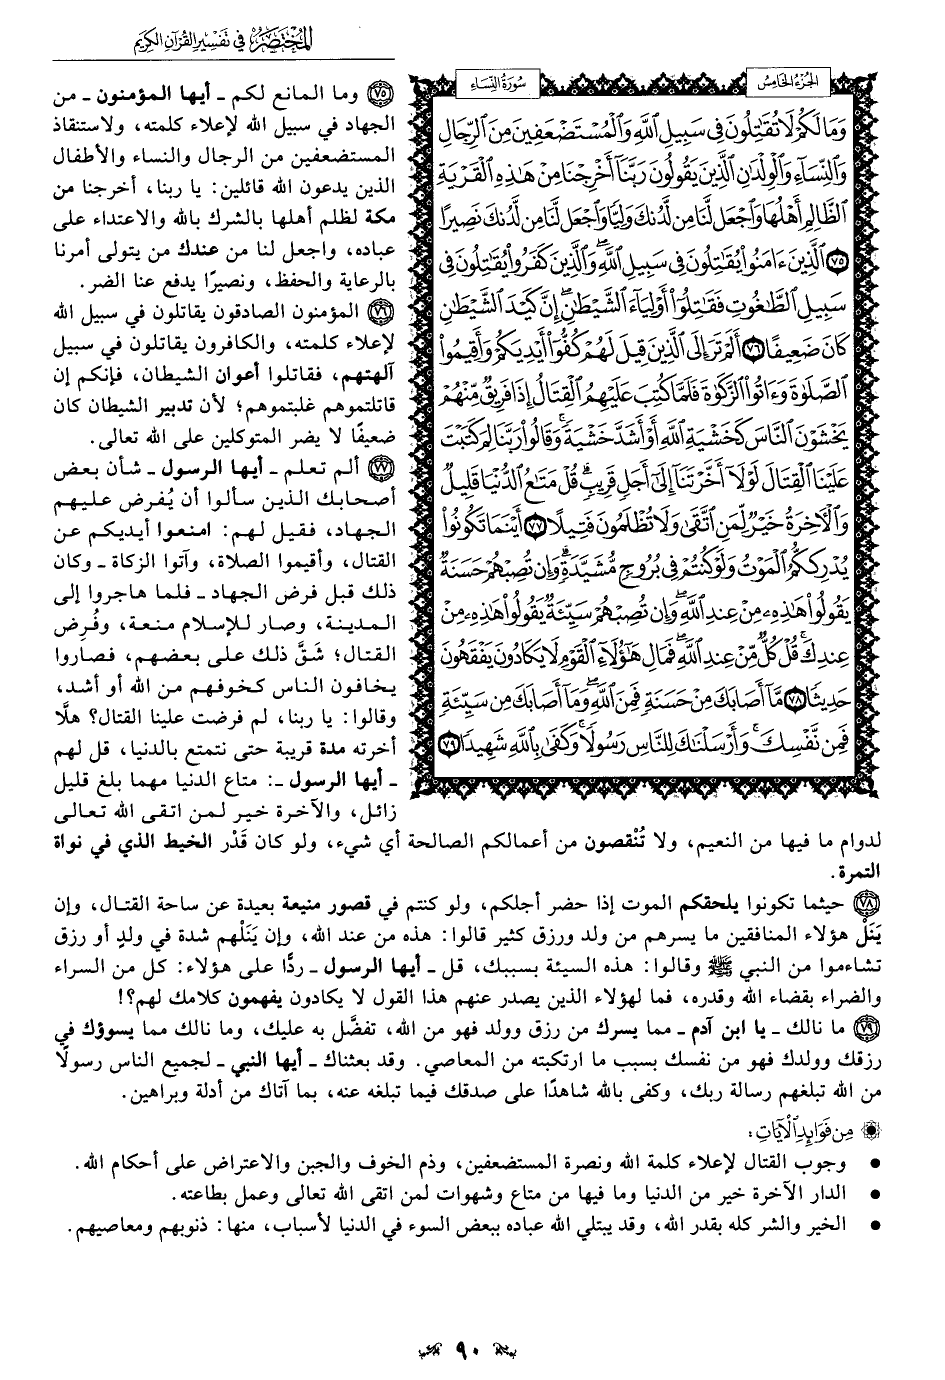 المختصر في تفسير القرآن الكريم
الجزء الخامس
سورة النساء
وَمَا لَكُمْ لَا تُقَاتِلُونَ فِي سَبِيلِ اللَّهِ وَالْمُسْتَضْعَفِينَ مِنَ الرِّجَالِ
وَالنِّسَاءِ وَالْوِلْدَانِ الَّذِينَ يَقُولُونَ رَبَّنَا أَخْرِجْنَا مِنْ هَٰذِهِ الْقَرْيَةِ
الظَّالِمِ أَهْلُهَا وَاجْعَل لَّنَا مِن لَّدُنكَ وَلِيًّا وَاجْعَل لَّنَا مِن لَّدُنكَ نَصِيرًا
٧٥ الَّذِينَ ءَامَنُوا يُقَاتِلُونَ فِي سَبِيلِ اللَّهِ ۖ وَالَّذِينَ كَفَرُوا يُقَاتِلُونَ فِي
سَبِيلِ الطَّاغُوتِ فَقَاتِلُوا أَوْلِيَاءَ الشَّيْطَانِ ۖ إِنَّ كَيْدَ الشَّيْطَانِ
كَانَ ضَعِيفًا ٧٦ أَلَمْ تَرَ إِلَى الَّذِينَ قِيلَ لَهُمْ كُفُّوا أَيْدِيَكُمْ وَأَقِيمُوا
الصَّلَاةَ وَءَاتُوا الزَّكَاةَ فَلَمَّا كُتِبَ عَلَيْهِمُ الْقِتَالُ إِذَا فَرِيقٌ مِّنْهُمْ
يَخْشَوْنَ النَّاسَ كَخَشْيَةِ اللَّهِ أَوْ أَشَدَّ خَشْيَةً ۚ وَقَالُوا رَبَّنَا لِمَ كَتَبْتَ
عَلَيْنَا الْقِتَالَ لَوْلَا أَخَّرْتَنَا إِلَىٰ أَجَلٍ قَرِيبٍ ۗ قُلْ مَتَاعُ الدُّنْيَا قَلِيلٌ
وَالْآخِرَةُ خَيْرٌ لِّمَنِ اتَّقَىٰ وَلَا تُظْلَمُونَ فَتِيلًا ٧٧ أَيْنَمَا تَكُونُوا
يُدْرِككُّمُ الْمَوْتُ وَلَوْ كُنتُمْ فِي بُرُوجٍ مُّشَيَّدَةٍ ۗ وَإِن تُصِبْهُمْ حَسَنَةٌ
يَقُولُوا هَٰذِهِ مِنْ عِندِ اللَّهِ ۖ وَإِن تُصِبْهُمْ سَيِّئَةٌ يَقُولُوا هَٰذِهِ مِنْ
عِندِكَ ۚ قُلْ كُلٌّ مِّنْ عِندِ اللَّهِ ۖ فَمَالِ هَٰؤُلَاءِ الْقَوْمِ لَا يَكَادُونَ يَفْقَهُونَ
حَدِيثًا ٧٨ مَّا أَصَابَكَ مِنْ حَسَنَةٍ فَمِنَ اللَّهِ ۖ وَمَا أَصَابَكَ مِن سَيِّئَةٍ
فَمِن نَّفْسِكَ ۚ وَأَرْسَلْنَاكَ لِلنَّاسِ رَسُولًا ۚ وَكَفَىٰ بِاللَّهِ شَهِيدًا ٧٩
٧٥ وما المانع لكم ـ أيها المؤمنون ـ من
الجهاد في سبيل الله لإعلاء كلمته، ولاستنقاذ
المستضعفين من الرجال والنساء والأطفال
الذين يدعون الله قائلين: يا ربنا، أخرجنا من
مكة لظلم أهلها بالشرك بالله والاعتداء على
عباده، واجعل لنا من عندك من يتولى أمرنا
بالرعاية والحفظ، ونصيرًا يدفع عنا الضر.
٧٦ المؤمنون الصادقون يقاتلون في سبيل الله
لإعلاء كلمته، والكافرون يقاتلون في سبيل
آلهتهم، فقاتلوا أعوان الشيطان، فإنكم إن
قاتلتموهم غلبتموهم؛ لأن تدبير الشيطان كان
ضعيفًا لا يضر المتوكلين على الله تعالى.
٧٧ ألم تعلم ـ أيها الرسول ـ شأن بعض
أصحابك الذين سألوا أن يُفرض عليهم
الجهاد، فقيل لهم: امنعوا أيديكم عن
القتال، وأقيموا الصلاة، وآتوا الزكاة ـ وكان
ذلك قبل فرض الجهاد ـ فلما هاجروا إلى
المدينة، وصار للإسلام منعة، وفُرض
القتال؛ شَقَّ ذلك على بعضهم، فصاروا
يخافون الناس كخوفهم من الله أو أشد،
وقالوا: يا ربنا، لم فرضت علينا القتال؟ هلَّا
أخرته مدة قريبة حتى نتمتع بالدنيا، قل لهم
ـ أيها الرسول ـ: متاع الدنيا مهما بلغ قليل
زائل، والآخرة خير لمن اتقى الله تعالى
لدوام ما فيها من النعيم، ولا تُنْقصون من أعمالكم الصالحة أي شيء، ولو كان قَدْر الخيط الذي في نواة
التمرة.
٧٨ حيثما تكونوا يلحقكم الموت إذا حضر أجلكم، ولو كنتم في قصور منيعة بعيدة عن ساحة القتال، وإن
يَنَلْ هؤلاء المنافقين ما يسرهم من ولد ورزق كثير قالوا: هذه من عند الله، وإن يَنَلْهم شدة في ولدٍ أو رزق
تشاءموا من النبي ﷺ وقالوا: هذه السيئة بسببك، قل ـ أيها الرسول ـ ردًّا على هؤلاء: كل من السراء
والضراء بقضاء الله وقدره، فما لهؤلاء الذين يصدر عنهم هذا القول لا يكادون يفهمون كلامك لهم؟!
٧٩ ما نالك ـ يا ابن آدم ـ مما يسرك من رزق وولد فهو من الله، تفضَّل به عليك، وما نالك مما يسوؤك في
رزقك وولدك فهو من نفسك بسبب ما ارتكبته من المعاصي. وقد بعثناك ـ أيها النبي ـ لجميع الناس رسولًا
من الله تبلغهم رسالة ربك، وكفى بالله شاهدًا على صدقك فيما تبلغه عنه، بما آتاك من أدلة وبراهين.
من فوائد الآيات:
• وجوب القتال لإعلاء كلمة الله ونصرة المستضعفين، وذم الخوف والجبن والاعتراض على أحكام الله.
• الدار الآخرة خير من الدنيا وما فيها من متاع وشهوات لمن اتقى الله تعالى وعمل بطاعته.
• الخير والشر كله بقدر الله، وقد يبتلي الله عباده ببعض السوء في الدنيا لأسباب، منها: ذنوبهم ومعاصيهم.
٩٠